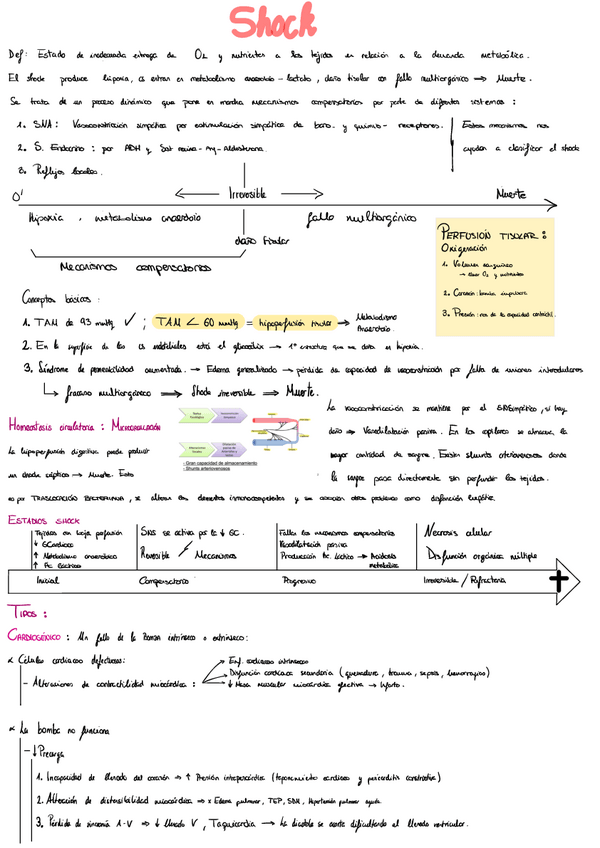 Shock
Def: Estado de inadecuada entrega de O2 y nutrientes a los tejidos en relación a la demanda metabólica.
El shock produce hipoxia, cs entran en metabolismo anaerobio - lactato, daño tisular con fallo multiorgánico → Muerte.
Se trata de un proceso dinámico que pone en marcha mecanismos compensatorios por parte de diferentes sistemas :
1. SNA : Vasoconstricción simpática por estimulación simpática de baro- y quimio- receptores.
2. S. Endocrino : por ADH y Sist renina - Ang - Aldosterona.
3. Reflejos locales.
Estos mecanismos nos
ayudan a clasificar el shock
0' Irreversible Muerte
Hipoxia, metabolismo anaerobio
fallo multiorgánico
daño tisular
Mecanismos compensatorios
PERFUSIÓN TISULAR :
Oxigenación
1. Volumen sanguíneo
→ llevar O2 y nutrientes
2. Corazón : bomba impulsora
3. Presión : nos da la capacidad contráctil.
Conceptos básicos :
1. TAM de 93 mmHg ✓ ; TAM < 60 mmHg = hipoperfusión tisular → Metabolismo Anaerobio.
2. En la superficie de las cs endoteliales está el glucocálix → 1ª estructura que se daña en hipoxia.
3. Síndrome de permeabilidad aumentada. → Edema generalizado → pérdida de capacidad de vasoconstricción por falta de uniones intercelulares
↳ fracaso multiorgánico ⇒ Shock irreversible ⇒ Muerte.
Homeostasis circulatoria : MICROCIRCULACIÓN
La hipoperfusión digestiva puede producir
un shock séptico → Muerte. Esto
es por TRASLOCACIÓN BACTERIANA, se alteran los elementos inmunocompetentes y se asocian otros problemas como disfunción hepática.
- Gran capacidad de almacenamiento
- Shunts arteriovenosos
La vasoconstricción se mantiene por el SNSimpático, si hay
daño → Vasodilatación pasiva. En los capilares se almacena la
mayor cantidad de sangre. Existen shunts arteriovenosos donde
la sangre pasa directamente sin perfundir los tejidos.
ESTADIOS SHOCK
Tejidos con baja perfusión
↓ GCardíaco
↑ Metabolismo anaerobico
↑ Ac. láctico
SNS se activa por la ↓ GC.
Reversible Mecanismos
Fallan los mecanismos compensatorios
Vasodilatación pasiva
Producción Ac. láctico → Acidosis metabólica
Necrosis celular
Disfunción orgánica múltiple
Inicial Compensatorio Progresivo Irreversible / Refractario
TIPOS :
CARDIOGÉNICO : Un fallo de la bomba intrínseco o extrínseco :
* Células cardíacas defectuosas:
- Alteraciones de contractilidad miocárdica :
→ Enf. cardíacas intrínsecas
→ Disfunción cardíaca secundaria (quemadura, trauma, sepsis, hemorragico)
→ ↓ Masa muscular miocárdica efectiva → Infarto.
* La bomba no funciona
- ↓ Precarga
1. Incapacidad de llenado del corazón → ↑ Presión intrapericárdica (taponamiento cardíaco y pericarditis constrictiva)
2. Alteración de distensibilidad miocárdica → x Edema pulmonar, TEP, SDR, Hipertensión pulmonar aguda.
3. Pérdida de sincronía A-V ⇒ ↓ llenado V, Taquicardia → La diástole se acorta dificultando el llenado ventricular.